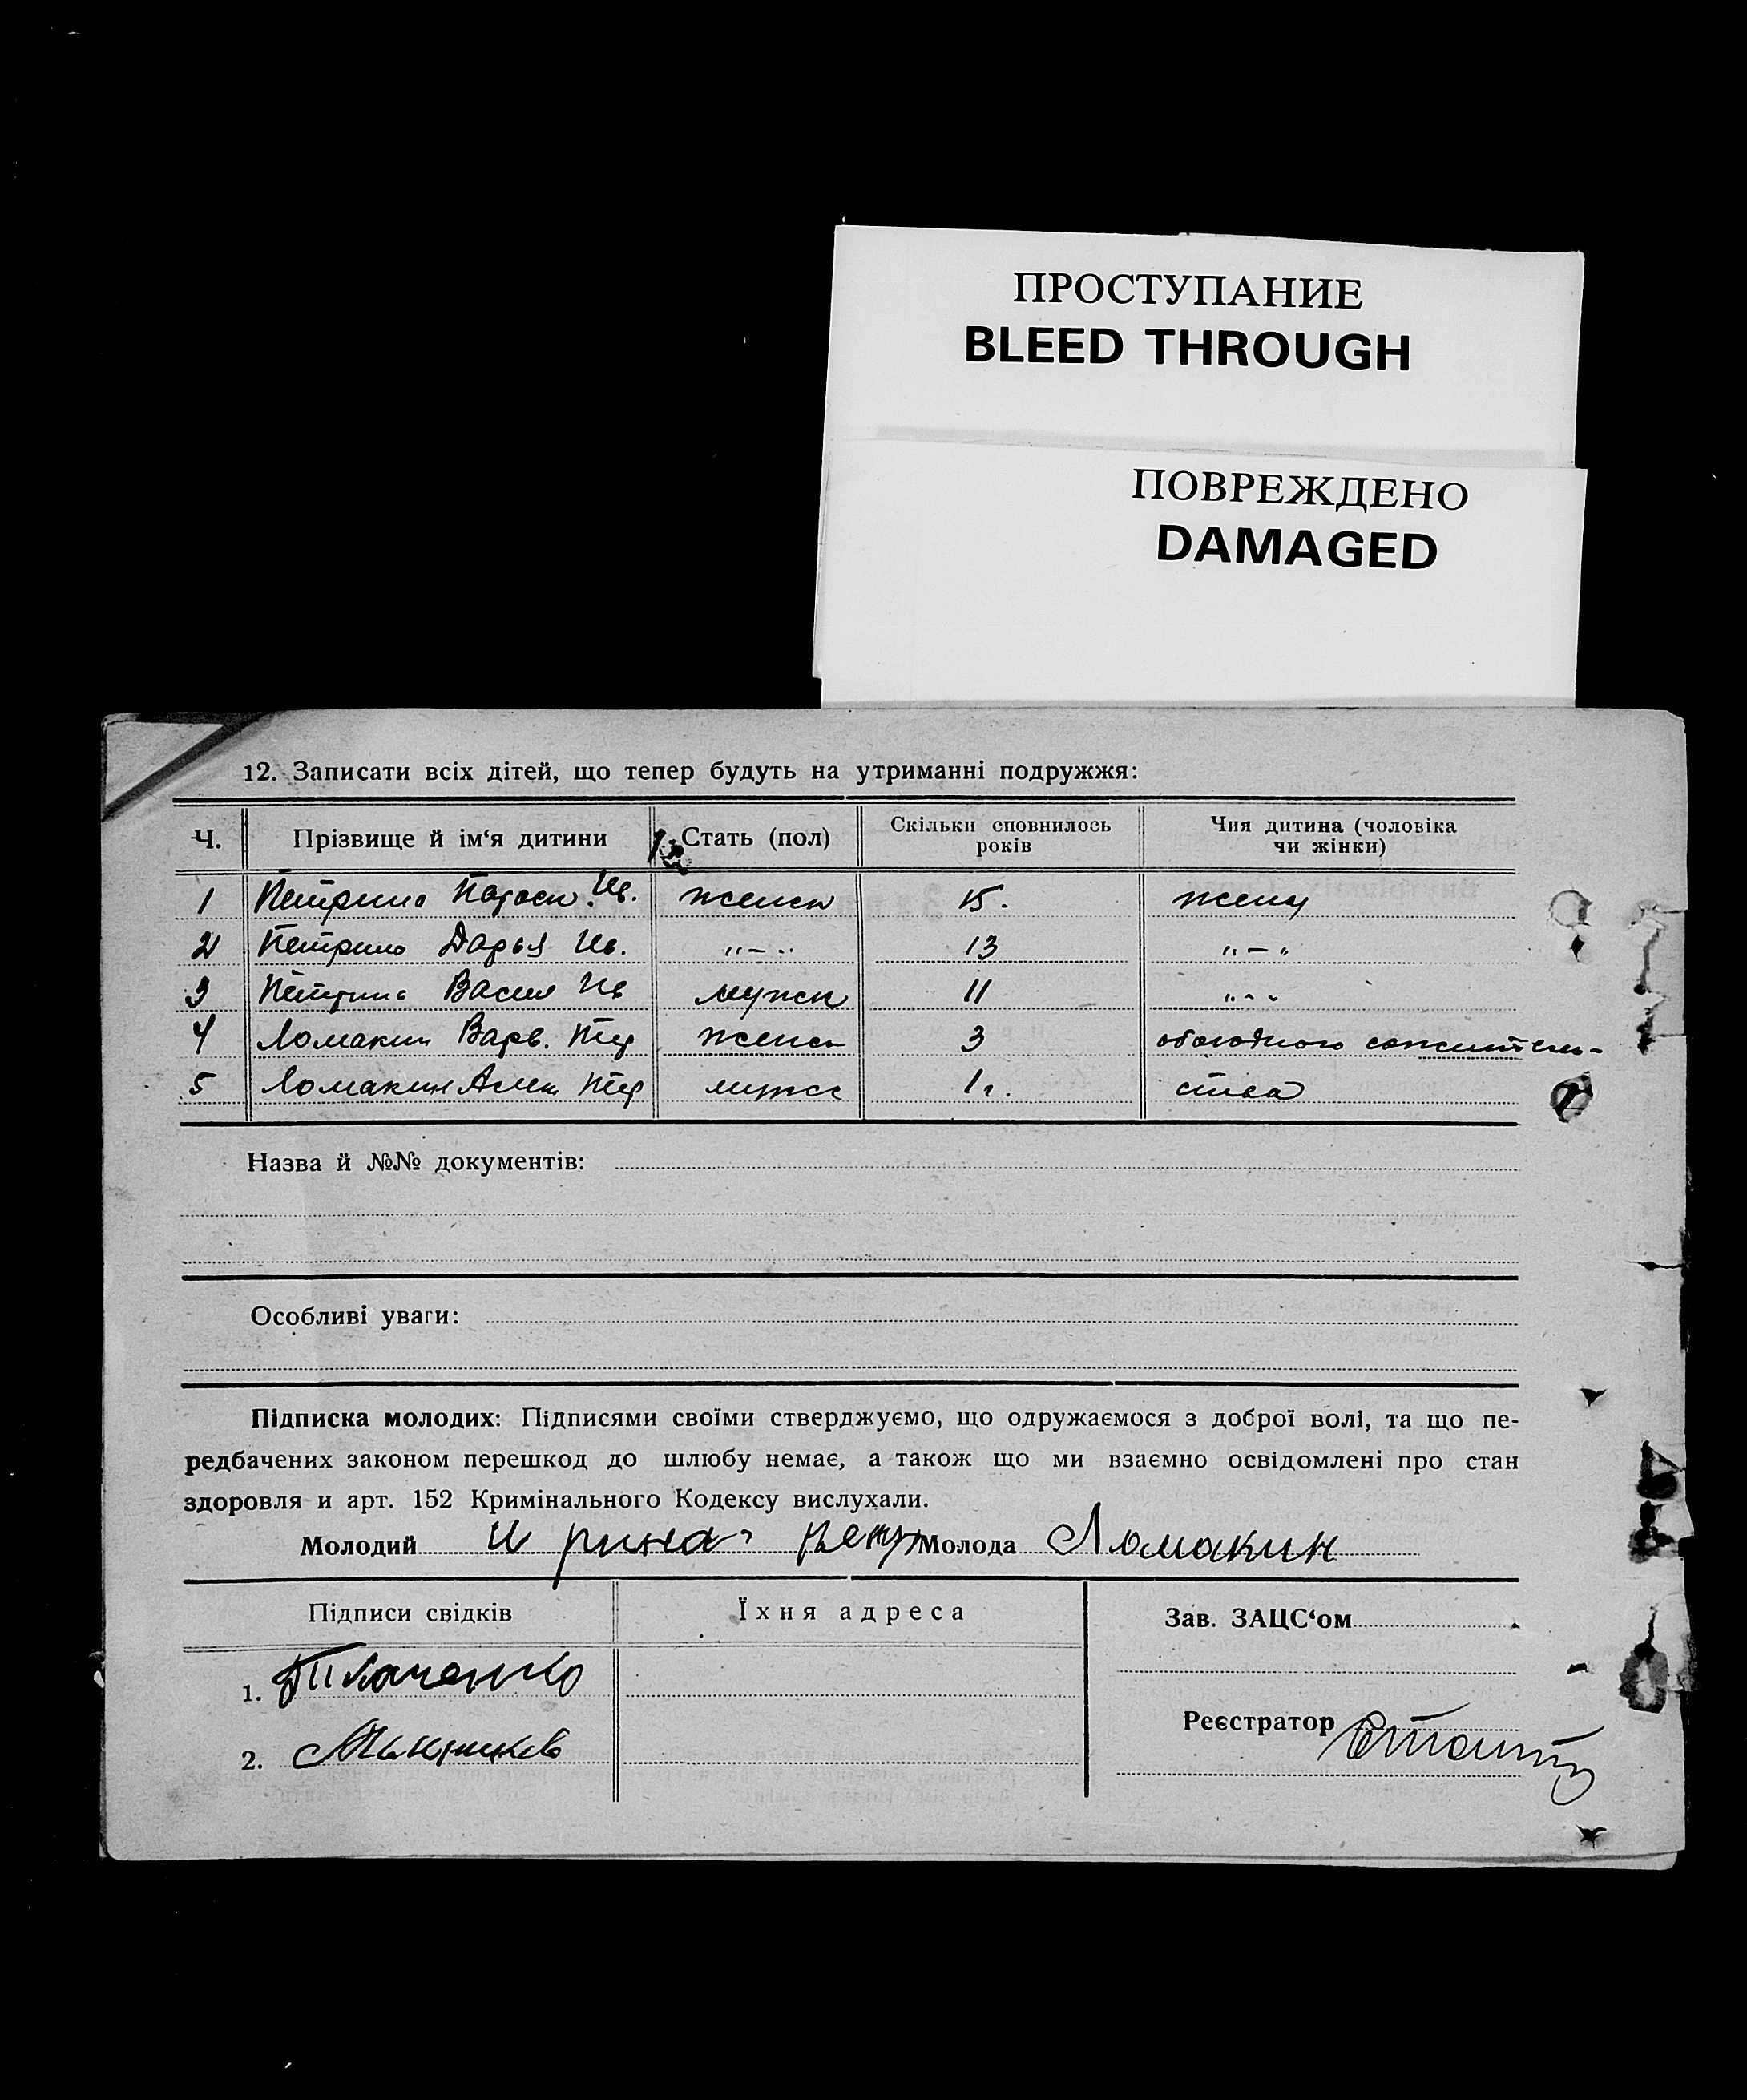 ПРОСТУПАНИЕ
BLEED THROUGH
ПОВРЕЖДЕНО
DAMAGED
12. Записати всіх дітей, що тепер будуть на утриманні подружжя:
Ч. Прізвище й ім‘я дитини Стать (пол) Скільки сповнилось років Чия дитина (чоловіка чи жінки)
1 Ив. женск 15. жены
2 Дарья Ив. "–" 13 "–"
3 Васил Ив мужск 11 "–"
4 Ломакин Варв. женск 3 обоюдного сожитель-
5 Ломакин мужс 1 г. ства
Назва й №№ документів:
Особливі уваги:
Підписка молодих: Підписями своїми стверджуємо, що одружаємося з доброї волі, та що пе-
редбачених законом перешкод до шлюбу немає, а також що ми взаємно освідомлені про стан
здоровля и арт. 152 Кримінального Кодексу вислухали.
Молодий Молода Ломакин
Підписи свідків Їхня адреса Зав. ЗАЦС‘ом
1. Ткаченко
Реєстратор
2.